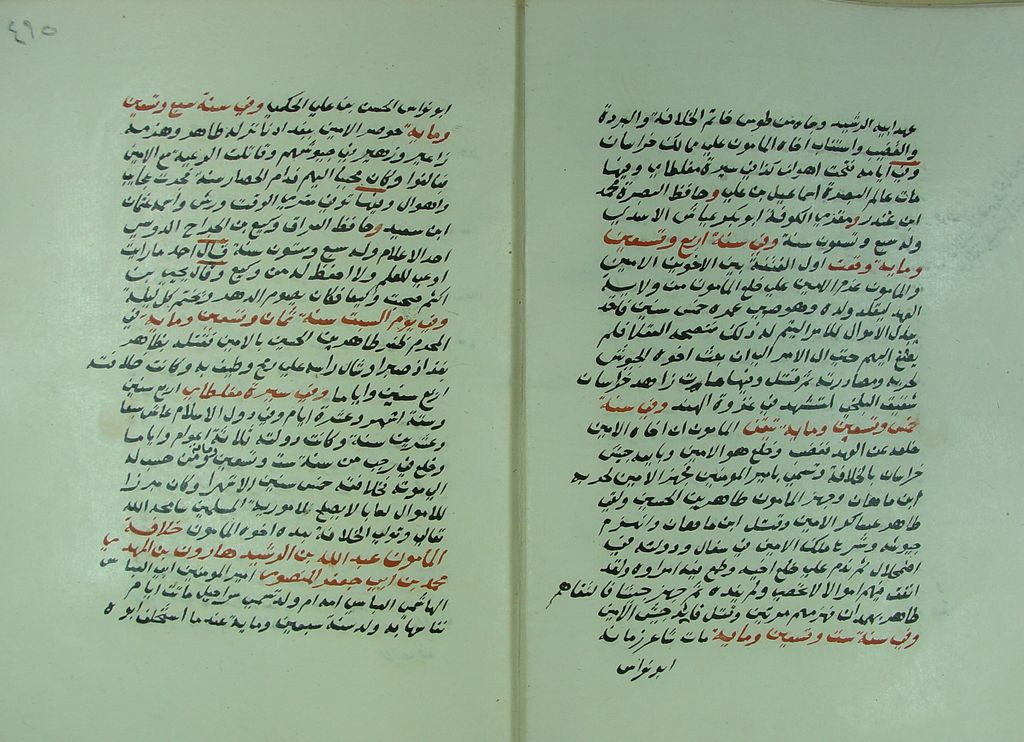 عهد ابيه الرشيد وجاه من طوس خاتم الخلافة والبردة
والقضيب واستناب اخاه المامون على ممالك خراسان
وفي ايامه فتحت اهوان كذا في سيرة مغلطاي وفيها
مات عالم البصرة اسماعيل بن علي وحافظ البصرة محمد
ابن غندر ومقري الكوفة ابو بكر عياش الاسدي
وله سبع وتسعون سنة وفي سنة اربع وتسعين
وماية وقعت اول الفتنة بين الاخوين الامين
والمامون عزم الامين على خلع المامون من ولاية
العهد ليقلد ولده وهو صبي عمره خمس سنين فاخذ
يبذل الاموال للامرا ليتم له ذلك فنصحه العقلا فلم
يصغ اليهم حتى ال الامر الى ان بعث اخوه الجيوش
لحربه ومصادرته ثم قتل وفيها مات زاهد خراسان
شقيق البلخي استشهد في غزوة الهند وفي سنة
خمس وتسعين وماية تيقن المامون ان اخاه الامين
خلعه من العهد فغضب وخلع هو الامين وبايعه جيش
خراسان بالخلافة وتسمى بامير المومنين فجهز الامين لحربه
ابن ماهان وجهز المامون طاهر بن الحسين ولقي
طاهر عساكر الامين وقتل ابن ماهان وانهزم
جيوشه وشرع ملك الامين في سفال ودولته في
اضمحلال ثم ندم على خلع اخيه وطمع فيه امراوه ولقد
انفق فيهم اموالا لا تحصى ولم يفده ثم جهز جيشا فالتقاهم
طاهر بهمدان فهزمهم مرتين وقتل قايد جيش الامين
وفي سنة ست وتسعين وماية مات شاعر زمانه
ابو نواس
٤٩٥
ابو نواس الحسن بن علي الحكمي وفي سنة سبع وتسعين
وماية حوصر الامين ببغداد نازله طاهر وهزمة
ابن اعين وزهير في جيوشهم وقاتلت الرعية مع الامين
وكان محببا اليهم فدام الحصار سنة فجرت عجايب
واهوال وفيها توفي مقري الوقت ورش واسمه عثمان
ابن سعيد وحافظ العراق وكيع بن الجراح الروسي
احد الاعلام وله سبع وستون سنة قال احمد ما رايت
اوعى للعلم ولا احفظ له من وكيع وقال يحيى بن
اكثم صحبت وكيعا فكان يصوم الدهر ويختم كل ليلة
وفي يوم السبت سنة ثمان وتسعين وماية في
المحرم ظفر طاهر بن الحسين بالامين فقتله بظاهر
بغداد صبرا وشال راسه على رمح وطيف به وكانت خلافته
اربع سنين واياما وفي سيرة مغلطاي اربع سنين
وستة اشهر وعشرة ايام وفي دول الاسلام عاش سبعا
وعشرين سنة وكانت دولته ثلاثة اعوام واياما
وخلع في رجب من سنة ست وتسعين ومن حسب له
الى موته فخلافته خمس سنين الا شهرا وكان مبذرا
للاموال لعابا لا يصلح لامورية المسلمين سامحه الله
تعالى وتولى الخلافة بعده اخوه المامون خلافة
المامون عبد الله بن الرشيد هارون بن المهدي
محمد بن ابي جعفر المنصور امير المومنين ابي العباس
الهاشمي العباسي امه ام ولد تسمى مراجل ماتت ايام
نفاسها به ولد سنة سبعين وماية عند ما استخلف ابوه